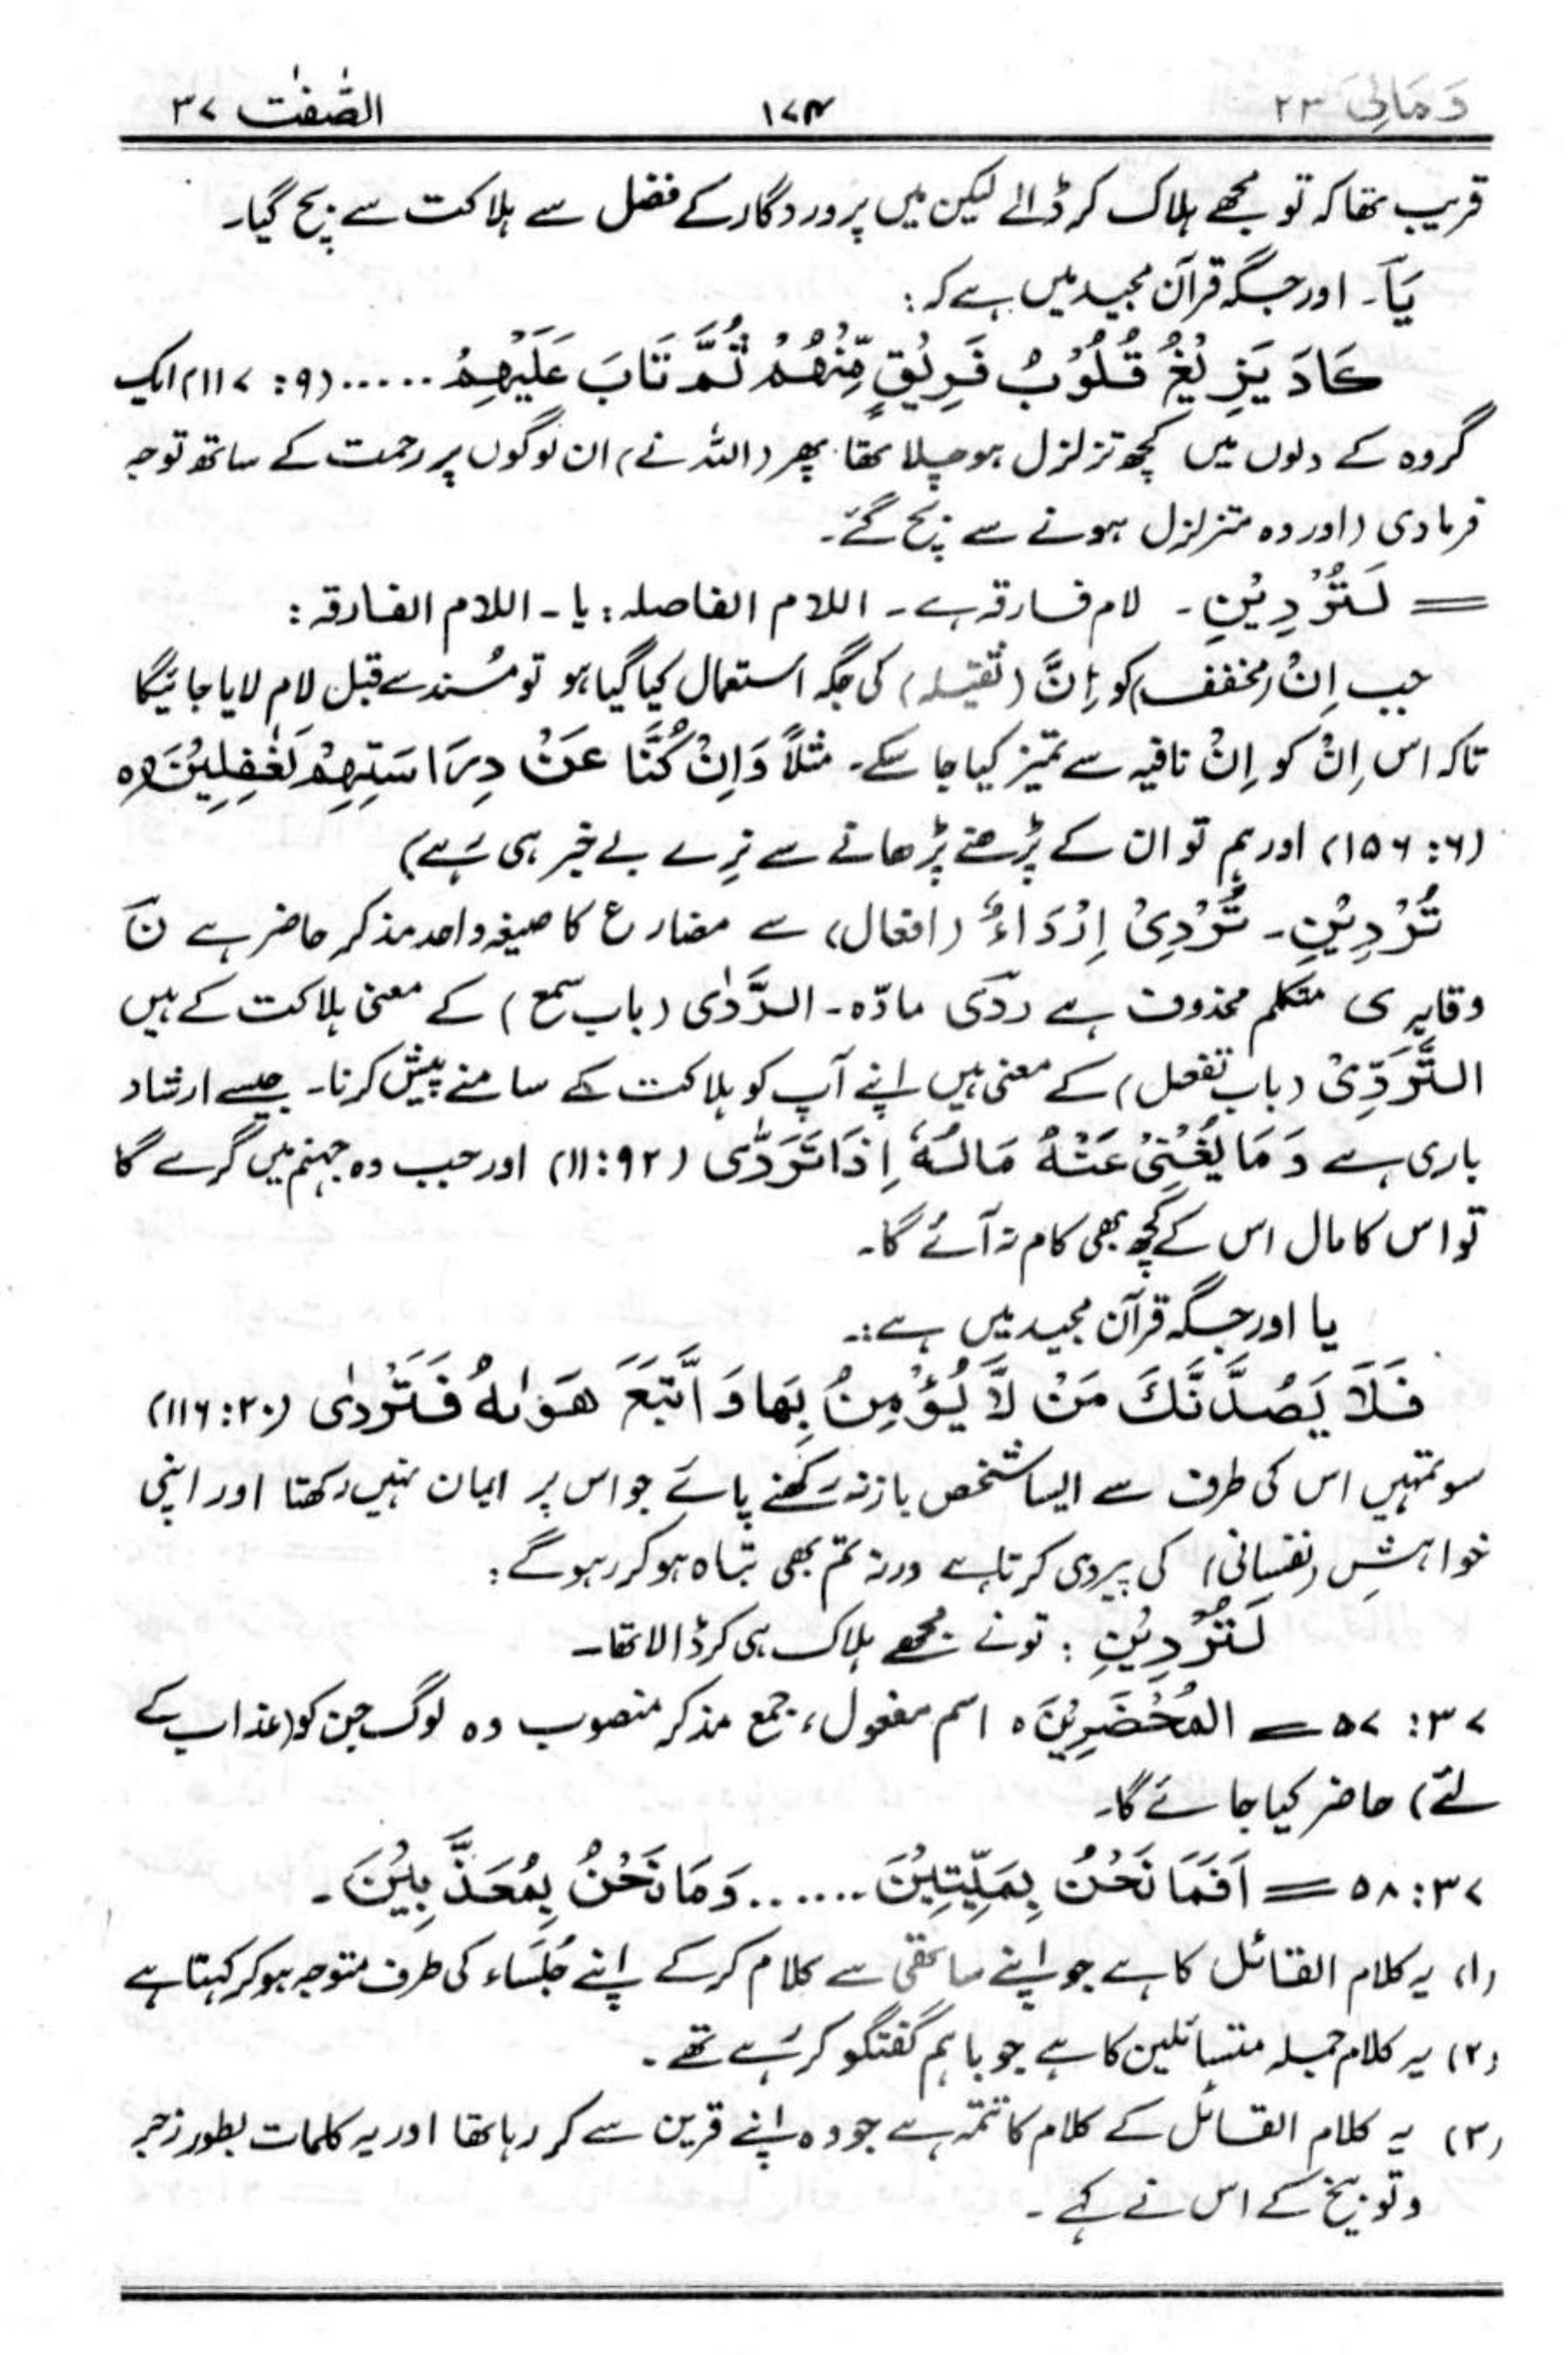 وَمَالِیَ ۲۳ ۱۷۴ الصّٰفّٰت ۳۷
قریب تھا کہ تو مجھے ہلاک کر ڈالے لیکن میں پروردگار کے فضل سے ہلاکت سے بچ گیا۔
یَا۔ اور جگہ قرآن مجید میں ہے کہ:
کَادَ یَزِیْغُ قُلُوْبُ فَرِیْقٍ مِّنْهُمْ ثُمَّ تَابَ عَلَیْهِمْ ..... (۹: ۱۱۷) ایک
گروہ کے دلوں میں کچھ تزلزل ہو چلا تھا پھر (اللہ نے) ان لوگوں پر رحمت کے ساتھ توجہ
فرما دی (اور وہ متزلزل ہونے سے بچ گئے۔
= لَتُرْدِیْنِ۔ لام فارقہ ہے۔ اللام الفاصلہ: یا۔ اللام الفارقہ:
جب اِنْ (مخفف) کو اِنَّ (ثقیلہ) کی جگہ استعمال کیا گیا ہو تو مُسند سے قبل لام لایا جائیگا
تاکہ اس اِنْ کو اِنْ نافیہ سے تمیز کیا جا سکے۔ مثلاً وَاِنْ کُنَّا عَنْ دِرَاسَتِهِمْ لَغٰفِلِیْنَ ہ
(۶: ۱۵۶) اور ہم تو ان کے پڑھنے پڑھانے سے نِرے بے خبر ہی رہے)
تُرْدِیْنِ۔ تُرْدِیْ اِرْدَاءٌ (افعال) سے مضارع کا صیغہ واحد مذکر حاضر ہے نَ
وقایہ ی متکلم محذوف ہے ردی مادّہ۔ الرَّدٰی (باب سمع) کے معنی ہلاکت کے ہیں
التَّرَدِّیْ (باب تفعل) کے معنی ہیں اپنے آپ کو ہلاکت کے سامنے پیش کرنا۔ جیسے ارشاد
باری ہے وَمَا یُغْنِیْ عَنْهُ مَالُهٗ اِذَا تَرَدّٰی (۹۲: ۱۱) اور جب وہ جہنم میں گرے گا
تو اس کا مال اس کے کچھ بھی کام نہ آئے گا۔
یا اور جگہ قرآن مجید میں ہے:۔
فَلَا یَصُدَّنَّكَ مَنْ لَّا یُؤْمِنُ بِهَا وَاتَّبَعَ هَوٰىهُ فَتَرْدٰی (۲۰: ۱۱۶)
سو تمہیں اس کی طرف سے ایسا شخص باز نہ رکھنے پائے جو اس پر ایمان نہیں رکھتا اور اپنی
خواہشِ (نفسانی) کی پیروی کرتا ہے ورنہ تم بھی تباہ ہو کر رہو گے:
لَتُرْدِیْنِ: تونے مجھے ہلاک ہی کر ڈالا تھا۔
۳۷: ۵۷ = المُحْضَرِیْنَ ہ اسم مفعول، جمع مذکر منصوب وہ لوگ جن کو (عذاب کے
لئے) حاضر کیا جائے گا۔
۳۷: ۵۸ = اَفَمَا نَحْنُ بِمَیِّتِیْنَ ....... وَمَا نَحْنُ بِمُعَذَّبِیْنَ۔
(۱) یہ کلام القائل کا ہے جو اپنے ساتھی سے کلام کر کے اپنے جُلَسَاء کی طرف متوجہ ہو کر کہتا ہے
(۲) یہ کلام جملہ متسائلین کا ہے جو باہم گفتگو کر رہے تھے۔
(۳) یہ کلام القائل کے کلام کا تتمہ ہے جو وہ اپنے قرین سے کر رہا تھا اور یہ کلمات بطور زجر
و توبیخ کے اس نے کہے۔